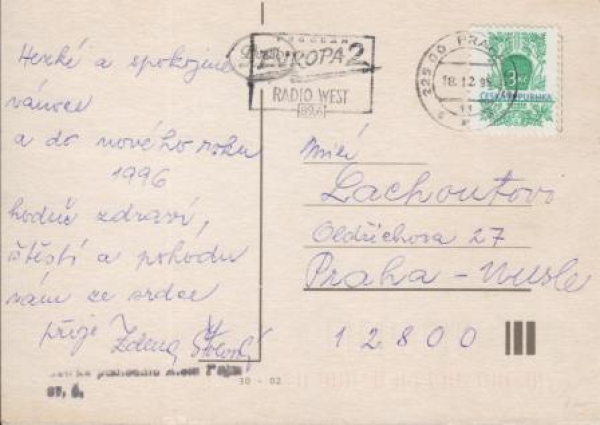 Hezké a spokojené
vánoce
a do nového roku
1996
hodně zdraví,
štěstí a pohodu
vám ze srdce
přeje Zdena
07. 6.
30 - 02
PROGRAM
EVROPA 2
RADIO WEST
89,4
225 00 PRA
18.12.95
3 Kč
ČESKÁ REPUBLIKA
Milí
Lachoutovi
Oldřichova 27
Praha - Nusle
12800